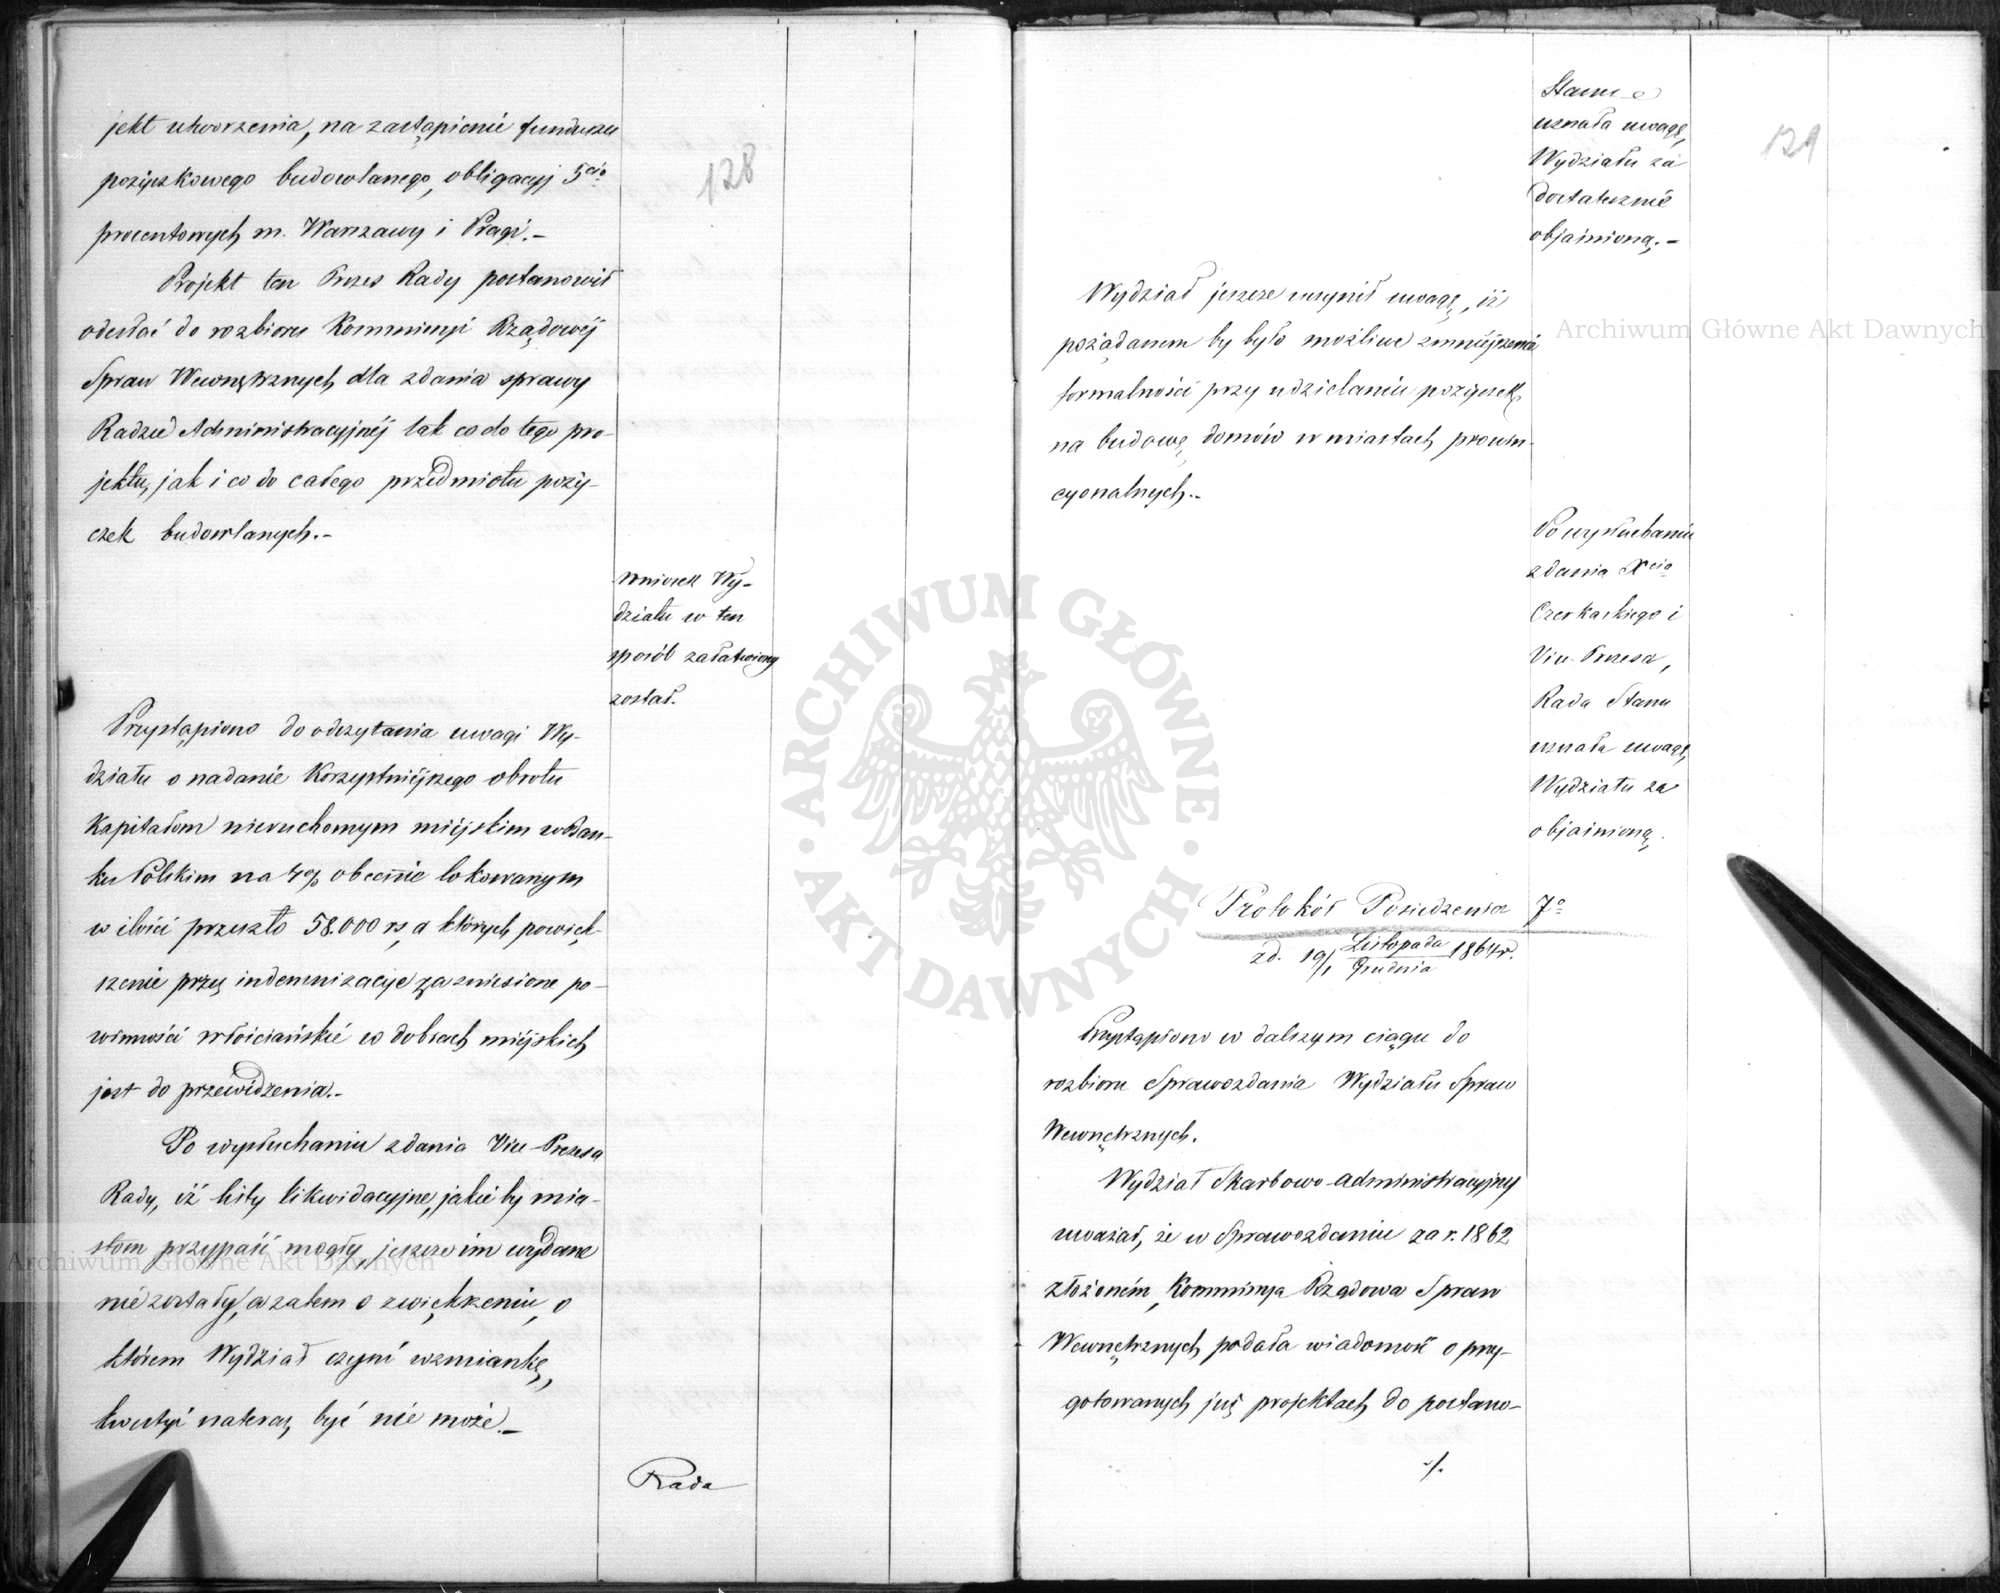 128
jekt utworzenia, na zastąpienie funduszu
pożyczkowego budowlanego, obligacyj 5cio
procentowych m. Warszawy i Pragi.-
Projekt ten Prezes Rady postanowił
odesłać do rozbioru Kommissyi Rządowéj
Spraw Wewnętrznych dla zdania sprawy
Radzie Administracyjnéj tak co do tego pro-
jektu, jak i co do całego przedmiotu poży-
czek budowlanych.-
Wniosek Wy-
działu w ten
sposób załatwiony
został.
Przystąpiono do odczytania uwagi Wy-
działu o nadanie Korzystniéjszego obrotu
Kapitałom nieruchomym miéjskim w Ban-
ku Polskim na 4% obecnie lokowanym
w ilości przeszło 58.000 rs, a których powięk-
szenie przez indemnizacye za zniesione po-
winności włościańskie w dobrach miéjskich
jest do przewidzenia.-
Po wysłuchaniu zdania Vice-Prezesa
Rady, iż listy likwidacyjne, jakie by mia-
stom przypaść mogły, jeszcze im wydane
nie zostały, a zatem o zwiększeniu, o
którem Wydział czyni wzmiankę,
kwestyi nateraz być nie może.-
Rada
129
Stanu
uznała uwagę
Wydziału za
dostatecznie
objaśnioną.-
Wydział jeszcze uczynił uwagę, iż
pożądanem by było możliwe zmniéjszenie
formalności przy udzielaniu pożyczek
na budowę domów w miastach prowin-
cyonalnych.-
Po wysłuchaniu
zdania Xcia
Czerkaskiego i
Vice-Prezesa,
Rada Stanu
uznała uwagę
Wydziału za
objaśnioną.
Protokół Posiedzenia 7o
z d. 19/1 Listopada/Grudnia 1864 r.
Przystąpiono w dalszym ciągu do
rozbioru Sprawozdania Wydziału Spraw
Wewnętrznych.
Wydział Skarbowo-Administracyjny
uważał, że w Sprawozdaniu za r. 1862
złożoném, Kommissya Rządowa Spraw
Wewnętrznych podała wiadomość o przy-
gotowanych już projektach do postano-
./.
Archiwum Główne Akt Dawnych
Archiwum Główne Akt Dawnych
ARCHIWUM GŁÓWNE
AKT DAWNYCH